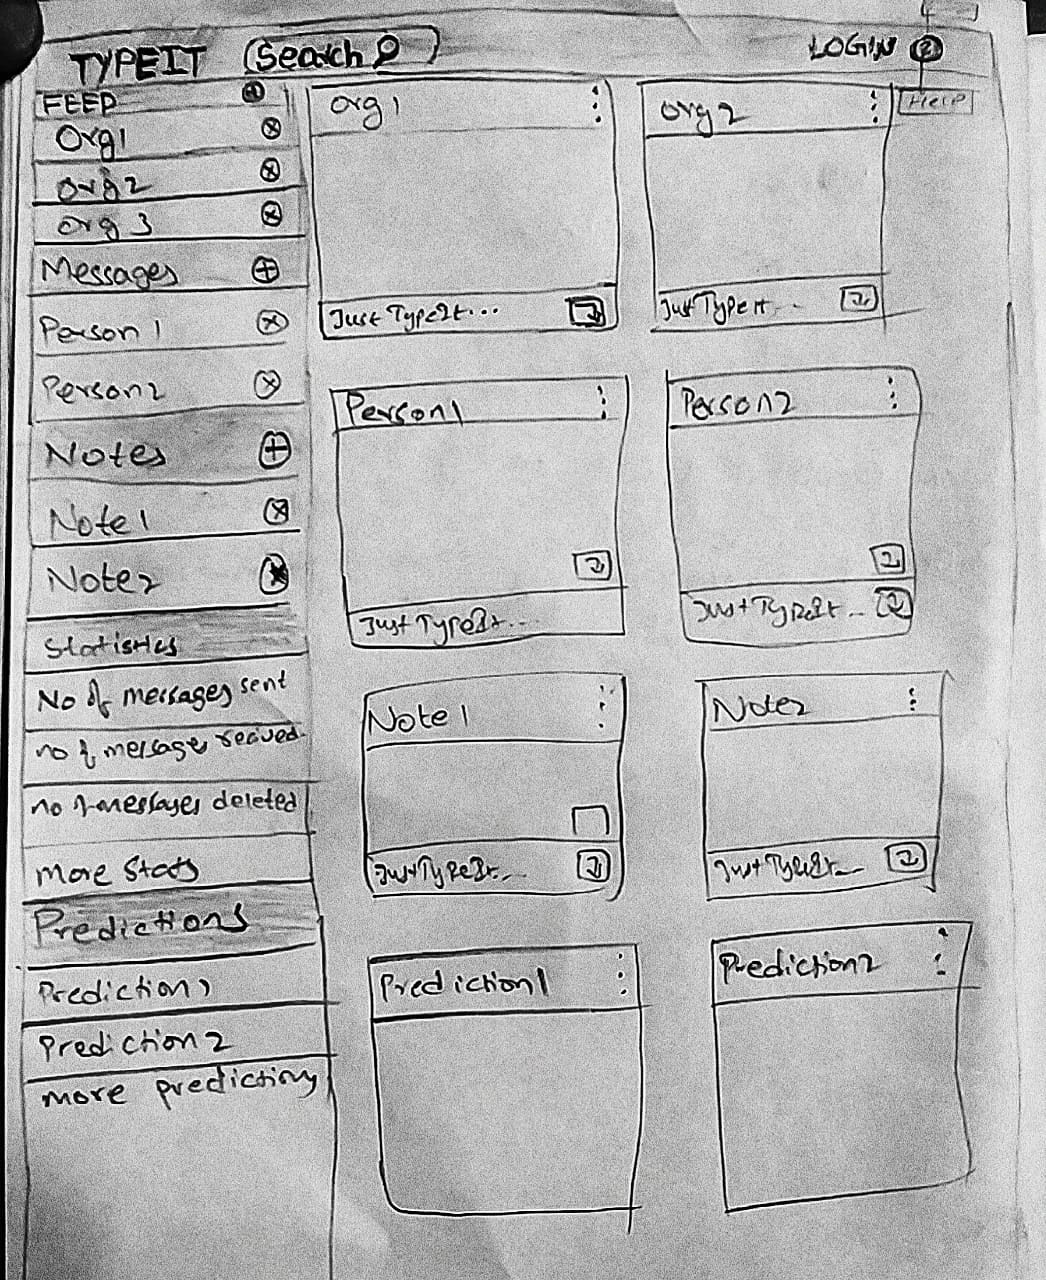 TYPEIT Search LOGIN ?
FEED
Org1
Org2
Org 3
Messages
Person 1
Person2
Notes
Note1
Note2
Statistics
No of messages sent
no of messages recived
no of messages deleted
More Stats
Predictions
Prediction1
Prediction 2
more predictions
Org 1
Org 2
Help
Just TypeIt...
Just TypeIt...
Person1
Person2
Just TypeIt...
Just TypeIt...
Note 1
Note2
Just TypeIt...
Just TypeIt...
Prediction1
Prediction2